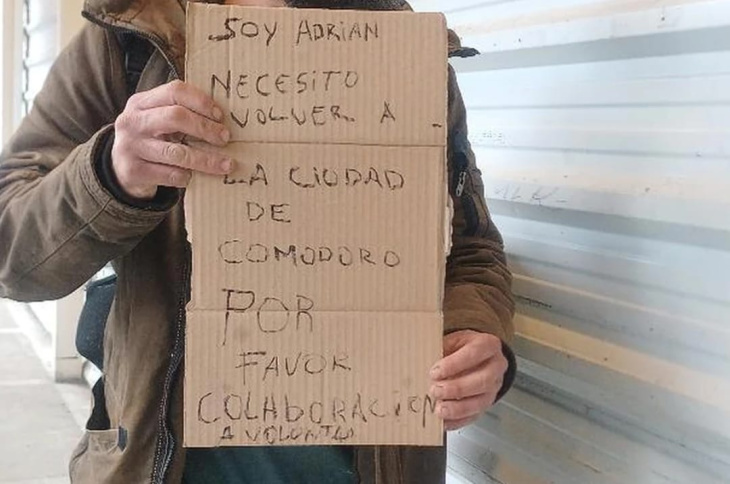 SOY ADRIAN
NECESITO
VOLVER A
LA CIUDAD
DE
COMODORO
POR
FAVOR
COLABORACION
A VOLUNTAD